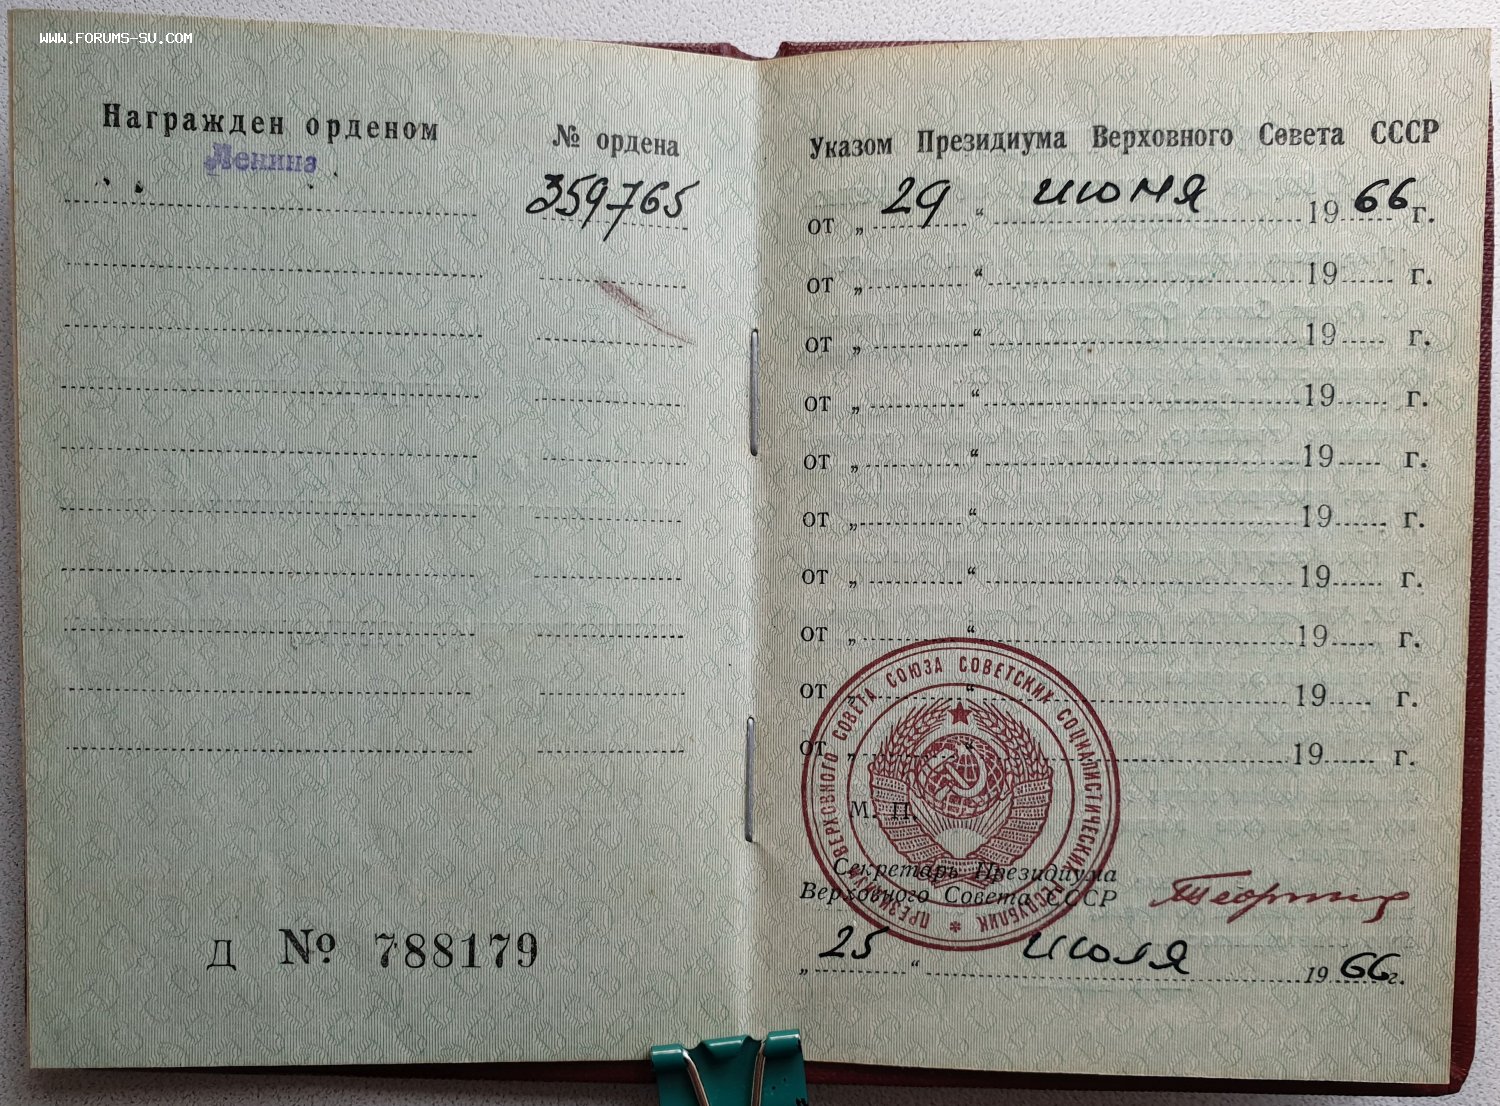 WWW.FORUMS-SU.COM
Награжден орденом
Ленина
№ ордена
359765
Д № 788179
Указом Президиума Верховного Совета СССР
от „ 29 “ июня 19 66 г.
от „ “ 19 г.
от „ “ 19 г.
от „ “ 19 г.
от „ “ 19 г.
от „ “ 19 г.
от „ “ 19 г.
от „ “ 19 г.
от „ “ 19 г.
от „ “ 19 г.
ПРЕЗИДИУМ ВЕРХОВНОГО СОВЕТА СОЮЗА СОВЕТСКИХ СОЦИАЛИСТИЧЕСКИХ РЕСПУБЛИК
М. П.
Секретарь Президиума
Верховного Совета СССР
„ 25 “ июля 19 66 г.